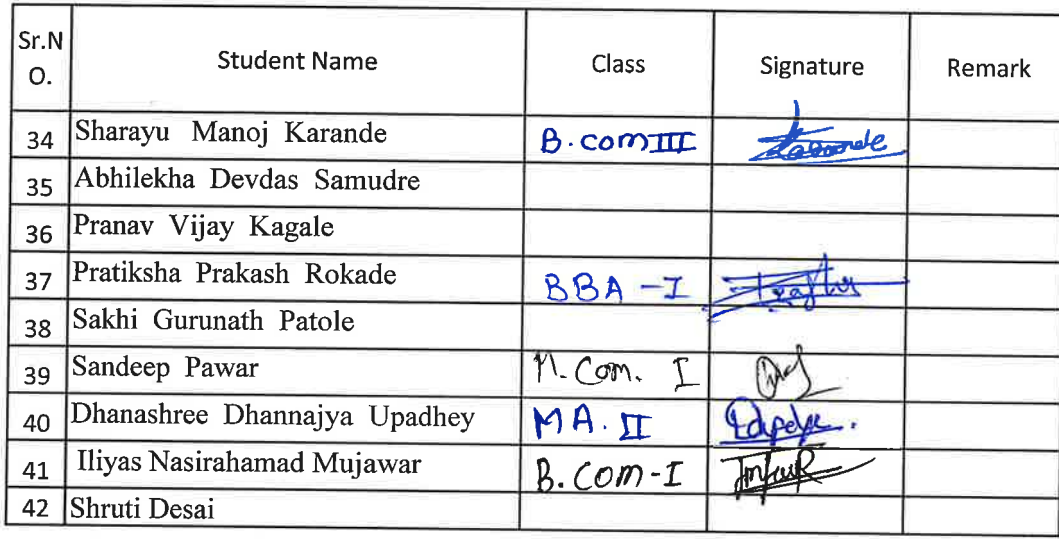 Sr.N O. Student Name Class Signature Remark
34 Sharayu Manoj Karande B.com III Karande
35 Abhilekha Devdas Samudre
36 Pranav Vijay Kagale
37 Pratiksha Prakash Rokade BBA - I
38 Sakhi Gurunath Patole
39 Sandeep Pawar M. Com. I
40 Dhanashree Dhannajya Upadhey MA. II
41 Iliyas Nasirahamad Mujawar B. COM - I
42 Shruti Desai